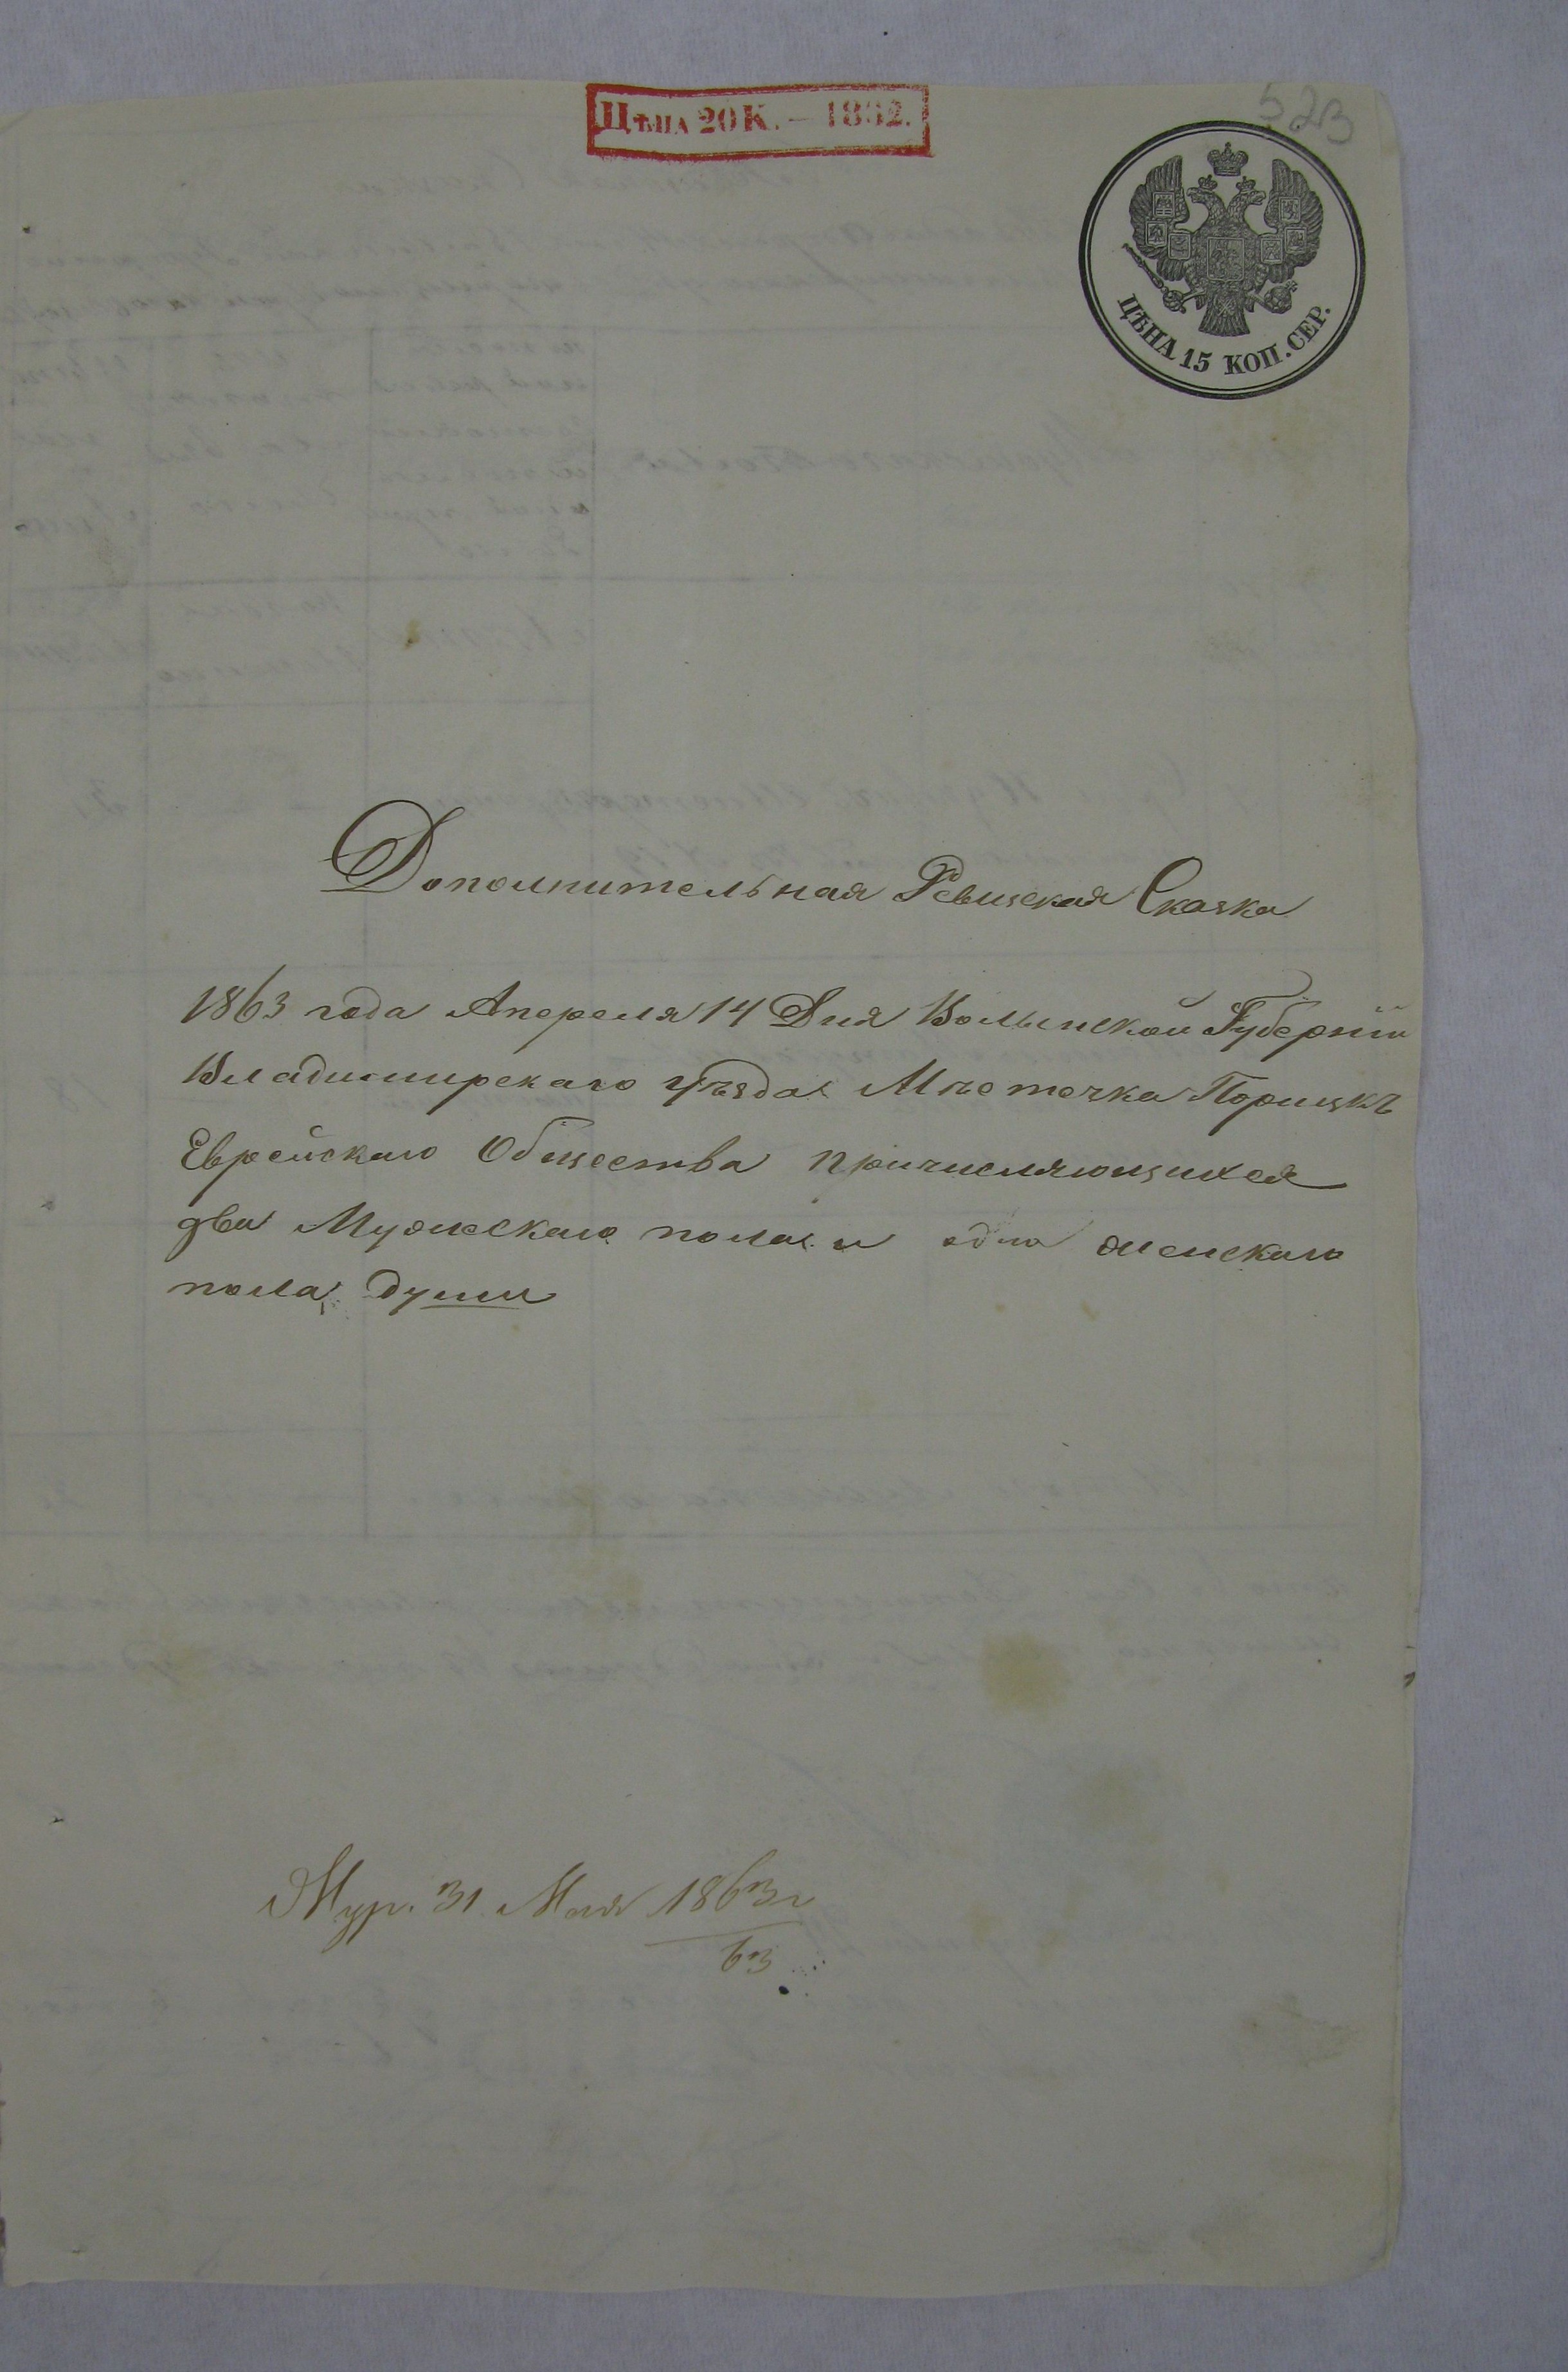 Цѣна 20 К. — 1862.
523
ЦѢНА 15 КОП. СЕР.
Дополнительная Ревизская Сказка
1863 года Апереля 14 Дня Волынской Губерніи
Владимирскаго уѣзда Мѣстечка Порицкъ
Еврейскаго Общества причисляющихся
два Мужескаго пола и одна женскаго
пола души
31 Мая 1863 г
63